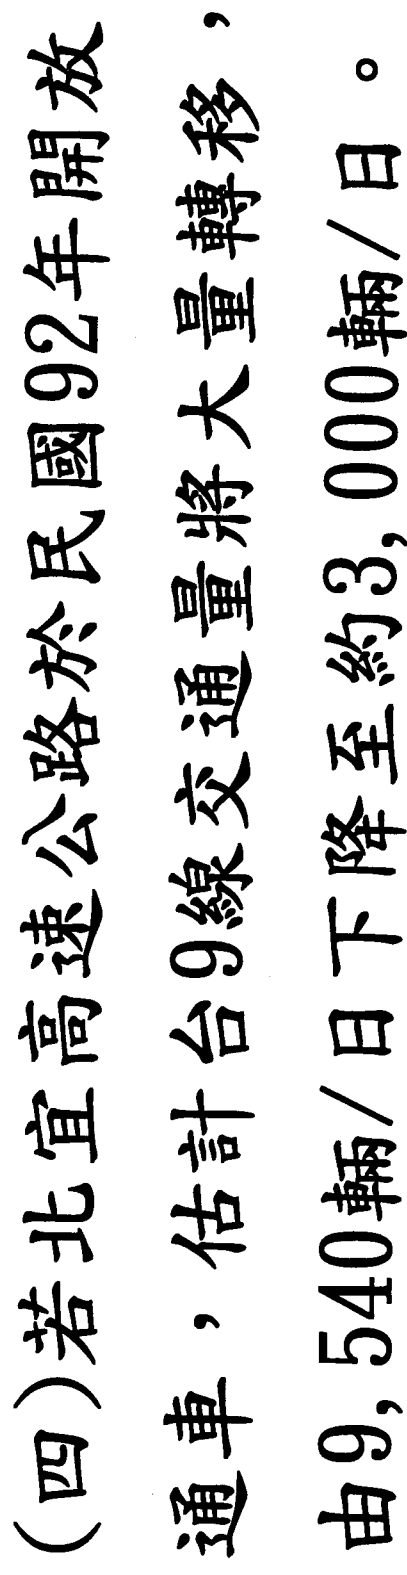 (四)若北宜高速公路於民國92年開放
通車，估計台9線交通量將大量轉移，
由9,540輛/日下降至約3,000輛/日。